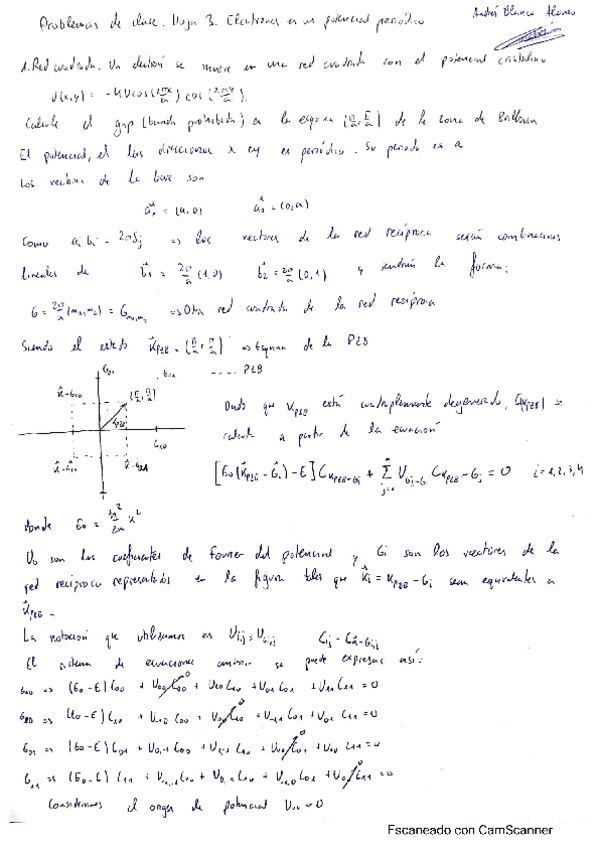 Problemas de clase. Hoja 3. Electrones en un potencial periódico
Andrés Blanco Alonso
1. Red cuadrada. Un electrón se mueve en una red cuadrada con el potencial cristalino
U(x,y) = -4U cos(2πx/a) cos(2πy/a).
Calcule el gap (banda prohibida) en la esquina (π/a, π/a) de la zona de Brillouin
El potencial, en las direcciones x e y es periódico. Su periodo es a
Los vectores de la base son
a₁ = (a,0) a₂ = (0,a)
Como aᵢbⱼ = 2πδᵢⱼ => los vectores de la red recíproca serán combinaciones
lineales de b₁ = 2π/a (1,0) b₂ = 2π/a (0,1) y tendrán la forma:
G = 2π/a (m₁,m₂) = Gm₁m₂ => Otra red cuadrada de la red recíproca
Siendo el estado KPZB = (π/a, π/a) => Esquina de la PZB
G01 G11 ---- PZB
K-G10 (π/a, π/a)
KPZB
G10
K-G11 K-G01
Dado que KPZB está cuadruplemente degenerado, E(KPZB) se
calcula a partir de la ecuación
[E0(KPZB - Gi) - E] CKPZB-Gi + Σ UGj-Gi CKPZB-Gj = 0 i=1,2,3,4
donde E0 = ħ²/2m K²
UG son los coeficientes de Fourier del potencial y Gi son los vectores de la
red recíproca representados en la figura tales que Ki = KPZB - Gi sean equivalentes a
KPZB.
La notación que utilizamos es Uij = UGij Cij = CK-Gij
El sistema de ecuaciones anterior se puede expresar así:
G00 => (E0-E) C00 + U00 C00 + U10 C10 + U01 C01 + U11 C11 = 0
G10 => (E0-E) C10 + U-10 C00 + U00 C10 + U-11 C01 + U01 C11 = 0
G01 => (E0-E) C01 + U0-1 C00 + U1-1 C10 + U00 C01 + U10 C11 = 0
G11 => (E0-E) C11 + U-1-1 C00 + U0-1 C10 + U-10 C01 + U00 C11 = 0
Consideramos el origen de potencial U00 = 0
Escaneado con CamScanner